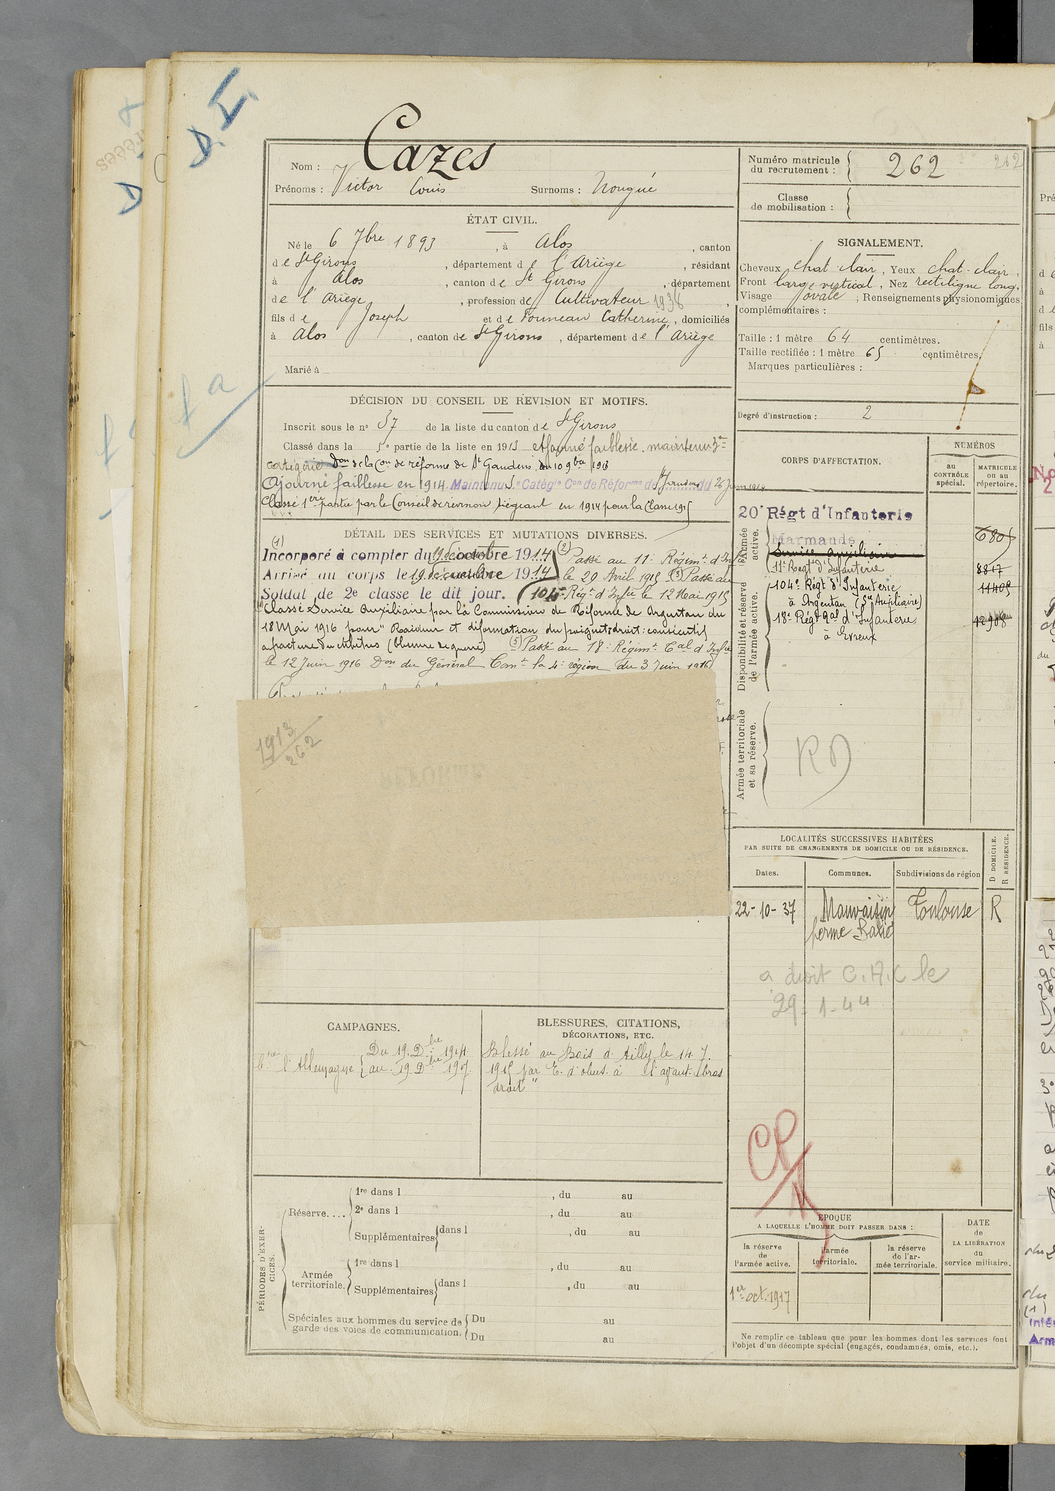 D. I.
Cazes
Nom :
Prénoms : Victor Louis Surnoms : Nougué
Numéro matricule
du recrutement : 262
262
Classe
de mobilisation :
ÉTAT CIVIL.
Né le 6 7bre 1893, à Alos, canton
de St Girons, département de l'Ariège, résidant
à Alos, canton de St Girons, département
de l'Ariège, profession de Cultivateur 1938
fils de Joseph et de Founeau Catherine, domiciliés
à Alos, canton de St Girons, département de l'Ariège
Marié à
SIGNALEMENT.
Cheveux chat. clair, Yeux chat. clair,
Front large vertical, Nez rectiligne long,
Visage ovale ; Renseignements physionomiques
complémentaires :
Taille : 1 mètre 64 centimètres.
Taille rectifiée : 1 mètre 65 centimètres.
Marques particulières :
Degré d'instruction : 2
DÉCISION DU CONSEIL DE REVISION ET MOTIFS.
Inscrit sous le n° 37 de la liste du canton de St Girons
Classé dans la 5e partie de la liste en 1913 ajourné faiblesse. maintenu
catégorie Don de la Con de réforme de St Gaudens du 10 9bre 1913
Ajourné faiblesse en 1914. Maintenu Catégie Con de Réforme de St Girons 26 Juin 1914
Classé 1ère partie par le Conseil de revision siégeant en 1914 pour la Classe 1915
DÉTAIL DES SERVICES ET MUTATIONS DIVERSES.
(1)
Incorporé à compter du 19 décembre 1914 (2) Passé au 11e Régimt d'Infie
Arrivé au corps le 19 décembre 1914 le 20 Avril 1915 (3) Passé au
Soldat de 2e classe le dit jour. 104e Régt d'Infie le 12 Mai 1915
Classé Service Auxiliaire par la Commission de Réforme de Argentan du
18 Mai 1916 pour "Raideur et déformation du poignet droit consécutif
a fracture du cubitus (blessure de guerre) (5) Passé au 18e Régimt Cal d'Infie
le 12 Juin 1916 Don du Général Comt la 4e région du 3 Juin 1916
1913
262
CORPS D'AFFECTATION.
NUMÉROS
au
CONTRÔLE
spécial.
MATRICULE
ou au
répertoire.
Armée
active.
20e Régt d'Infanterie
Marmande
Service Auxiliaire
11e Régt d'Infanterie
104e Régt d'Infanterie
à Argentan (See Auxiliaire)
18e Régt Cal d'Infanterie
à Evreux
6805
8817
11409
12908
Disponibilité et réserve
de l'armée active.
Armée territoriale
et sa réserve.
RD
LOCALITÉS SUCCESSIVES HABITÉES
PAR SUITE DE CHANGEMENTS DE DOMICILE OU DE RÉSIDENCE.
Dates.
Communes.
Subdivisions de région
D DOMICILE.
R RÉSIDENCE.
22-10-37 Mauvaisin Toulouse R
ferme
a droit C.A.C le
29-1-44
CAMPAGNES.
Ctre l'Allemagne
Du 19 Dbre 1914
au 19 Dbre 1917
BLESSURES, CITATIONS,
DÉCORATIONS, ETC.
Blessé au Bois d'Ailly le 14 7.
1915 par E. d'obus à l'avant-bras
droit"
PÉRIODES D'EXERCICES.
Réserve....
1re dans l , du au
2e dans l , du au
Supplémentaires dans l , du au
Armée
territoriale.
1re dans l , du au
Supplémentaires dans l , du au
Spéciales aux hommes du service de
garde des voies de communication.
Du au
Du au
ÉPOQUE
A LAQUELLE L'HOMME DOIT PASSER DANS :
la réserve
de
l'armée active.
l'armée
territoriale.
la réserve
de l'armée territoriale.
DATE
de
LA LIBÉRATION
du
service militaire.
1er oct. 1917
Ne remplir ce tableau que pour les hommes dont les services font
l'objet d'un décompte spécial (engagés, condamnés, omis, etc.).